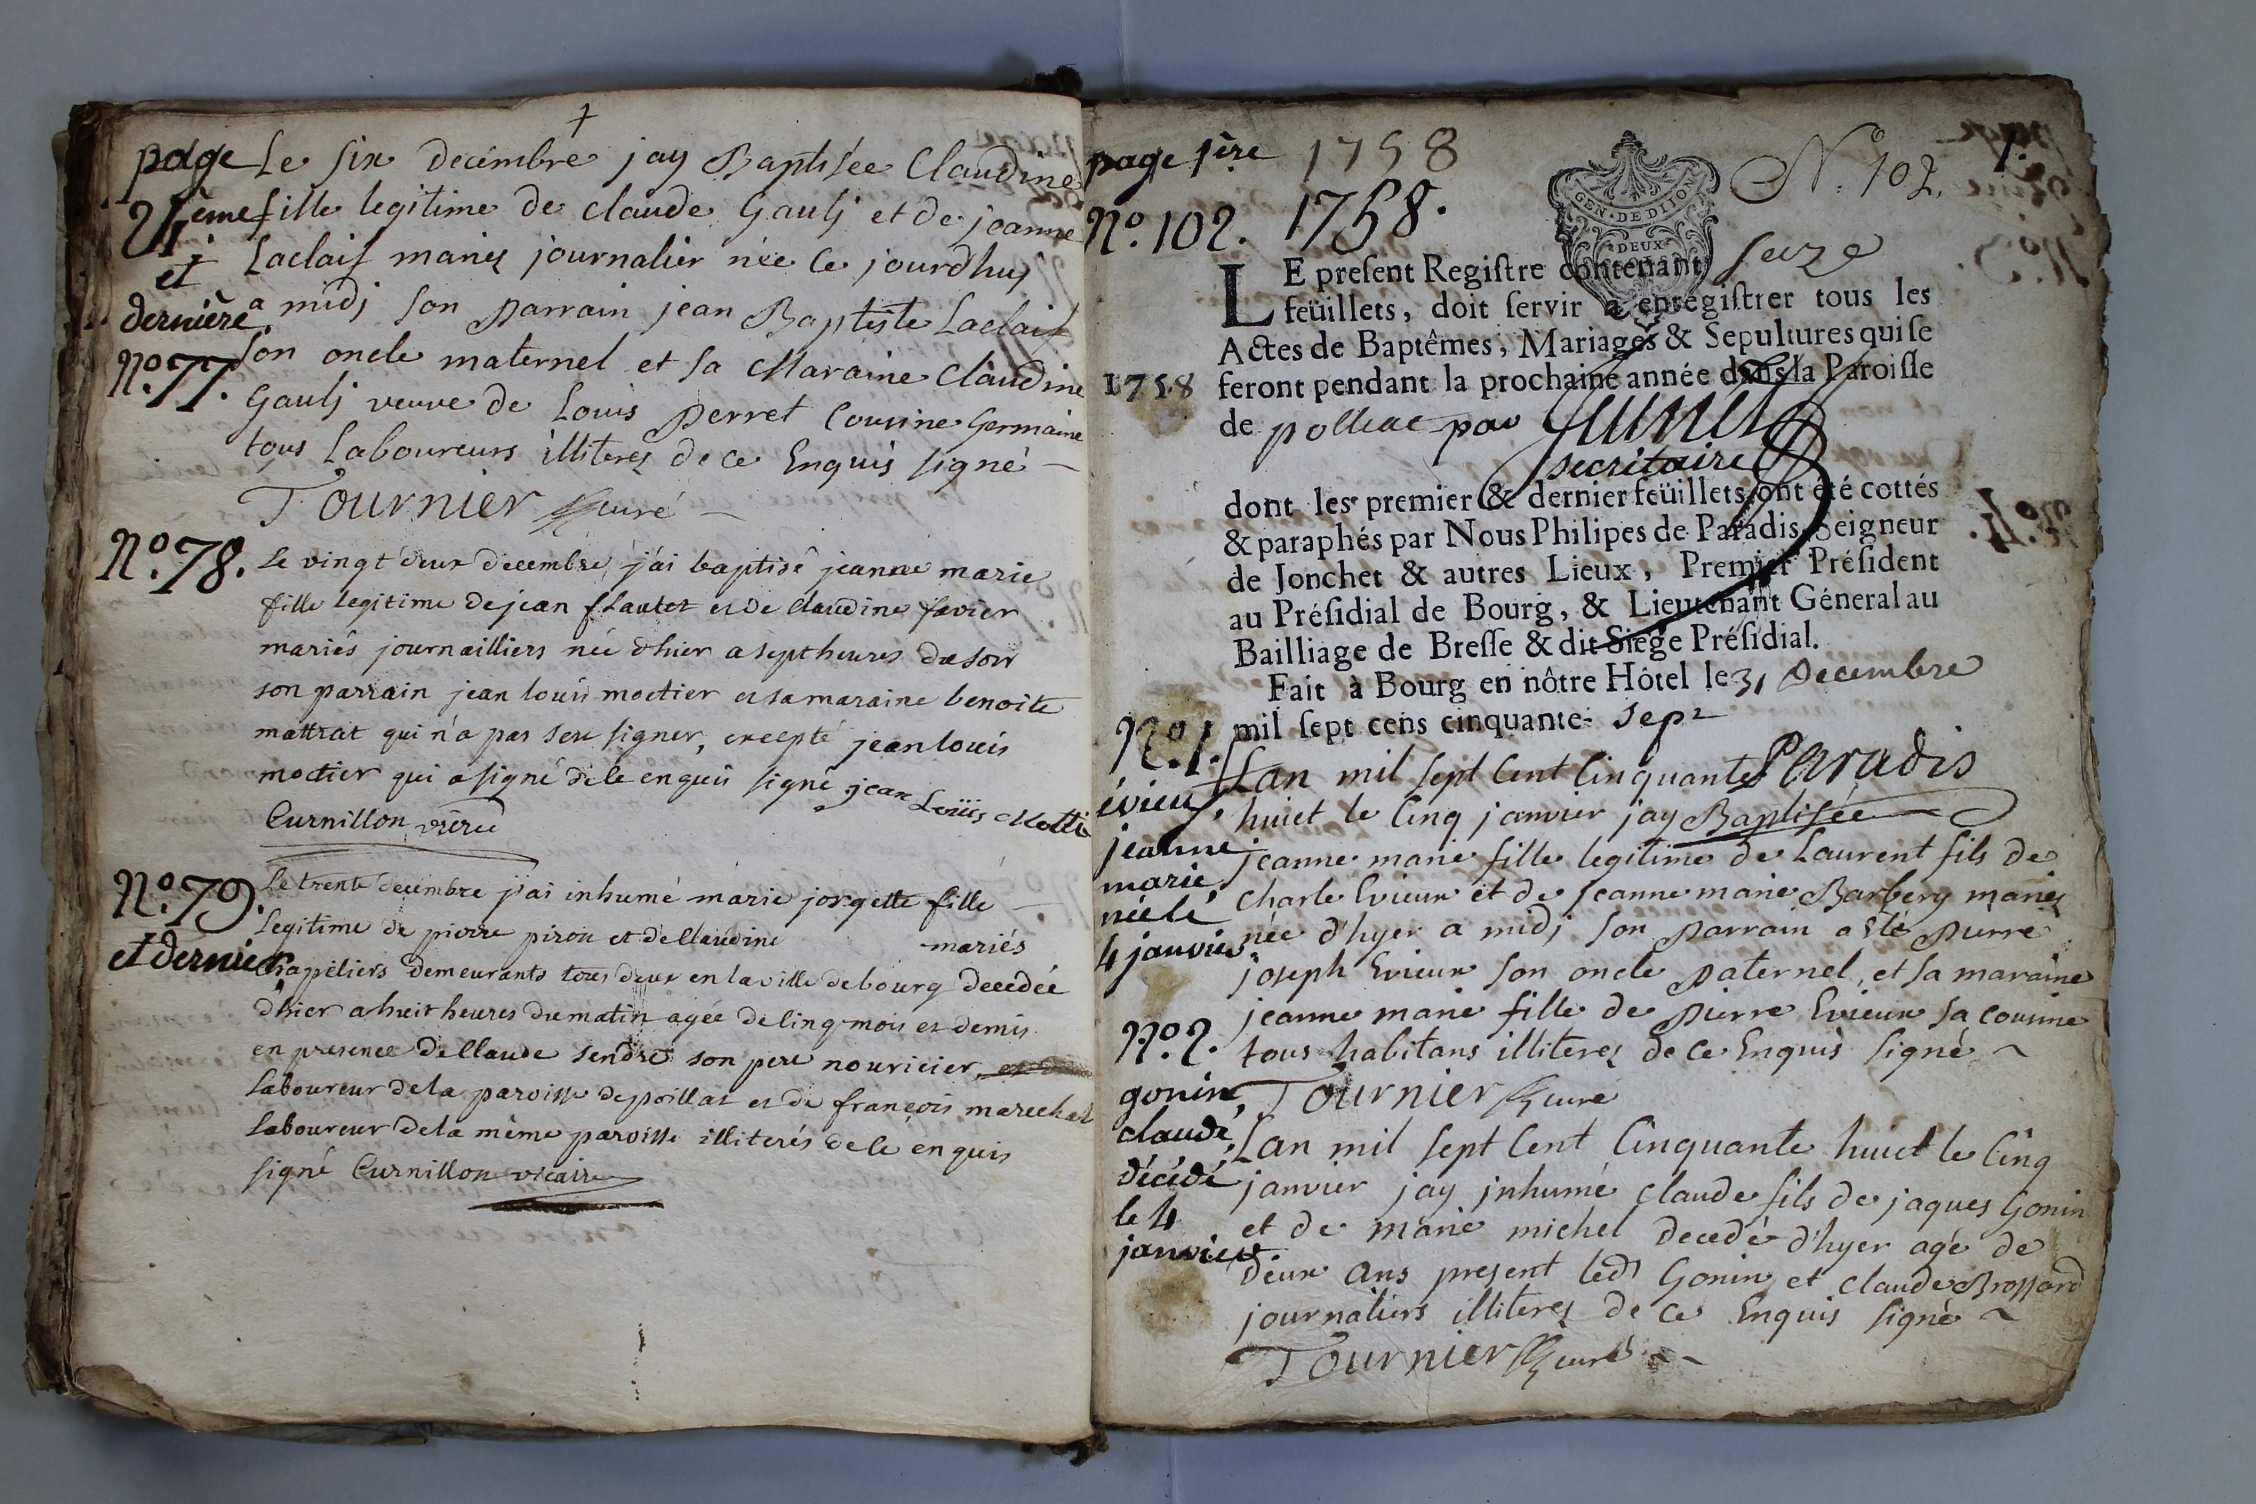 page
21ème
et
dernière
Nº. 77.
Le six decembre jay Baptisée Claudine
fille legitime de claude Gaulj et de jeanne
Laclaif mariez journalier née ce jourdhuj
a midj son parrain jean Baptiste Laclaif
son oncle maternel et sa Maraine Claudine
Gaulj veuve de Louis perret Cousine Germaine
tous Laboureurs illiterez de ce Enquis signé
Tournier curé
Nº. 78.
Le vingt deux decembre j'ai baptisé jeanne marie
fille legitime de jean flautet et de claudine favier
mariés journailliers née d'hier a sept heures du soir
son parrain jean louis moctier et sa maraine benoite
mattrat qui n'a pas seu signer, excepté jean louis
moctier qui a signé de ce enquis signé jean Louis Motti
Curnillon vicaire
Nº. 79.
et dernier
Le trente decembre j'ai inhumé marie jorgette fille
Legitime de pierre piron et de Claudine mariés
chapeliers demeurants tous deux en la ville de bourg decedée
d'hier a huit heures du matin agée de cinq mois et demis
en presence de Claude Sendre son pere nouricier,
Laboureur de la paroisse de poillat et de françois marechal
Laboureur de la même paroisse illiterés de ce enquis
signé Curnillon vicaire
page 1ère 1758
Nº. 102. 1758.
Nº. 102. 1.
GEN. DE DIJON
DEUX
LE present Registre contenant seize
feüillets, doit servir à enregistrer tous les
Actes de Baptêmes, Mariages & Sepultures qui se
1758 feront pendant la prochaine année dans la Paroisse
de polleac par
secretaire
dont les premier & dernier feüillets ont été cottés
& paraphés par Nous Philipes de Paradis, Seigneur
de Jonchet & autres Lieux, Premier Président
au Présidial de Bourg, & Lieutenant Géneral au
Bailliage de Bresse & dit Siége Présidial.
Fait à Bourg en nôtre Hôtel le 31 Decembre
mil sept cens cinquante- sept
Paradis
Nº. 1.
évieux,
jeanne
marie
née le
4 janvier
Lan mil sept Cent Cinquante
huict le Cinq janvier jay Baptisée
jeanne marie fille legitime de Laurent fils de
Charle Evieux et de jeanne marie Barbery mariez
née d'hyer a midj son parrain a Eté pierre
joseph Evieux son oncle paternel, et sa maraine
jeanne marie fille de pierre Evieux sa cousine
tous habitans illiterez de ce Enquis signé
Tournier curé
Nº. 2.
gonin,
claude,
décédé
le 4
janvier
Lan mil sept Cent Cinquante huict le Cinq
janvier jay jnhumé claude fils de jaques Gonin
et de marie michel decedé d'hyer agé de
deux ans present led Gonin et claude Brossard
journaliers illiterez de ce Enquis signé
Tournier curé